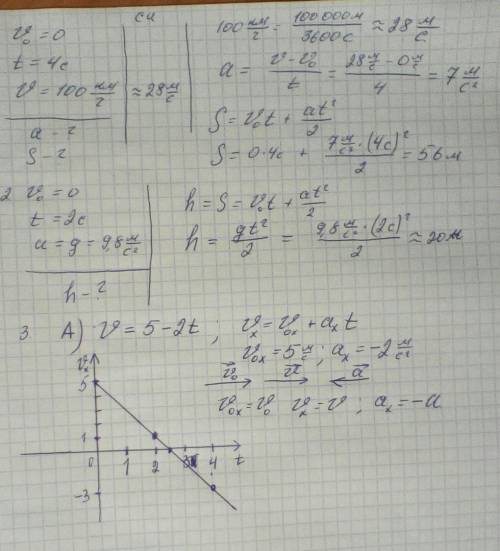 си
v₀ = 0
t = 4с
v = 100 км/ч ≈ 28 м/с
a - ?
S - ?
100 км/ч = 100000м/3600с ≈ 28 м/с
a = (v - v₀)/t = (28 м/с - 0 м/с)/4 = 7 м/с²
S = v₀t + at²/2
S = 0·4с + (7 м/с² · (4с)²)/2 = 56 м
2 v₀ = 0
t = 2с
a = g = 9,8 м/с²
h - ?
h = S = v₀t + at²/2
h = gt²/2 = (9,8 м/с² · (2с)²)/2 ≈ 20 м
3. А) v = 5 - 2t ; vₓ = v₀ₓ + aₓt
v₀ₓ = 5 м/с ; aₓ = -2 м/с²
v₀ v a
v₀ₓ = v₀ vₓ = v ; aₓ = -a
vₓ
5
1
0 1 2 3 4 t
-3